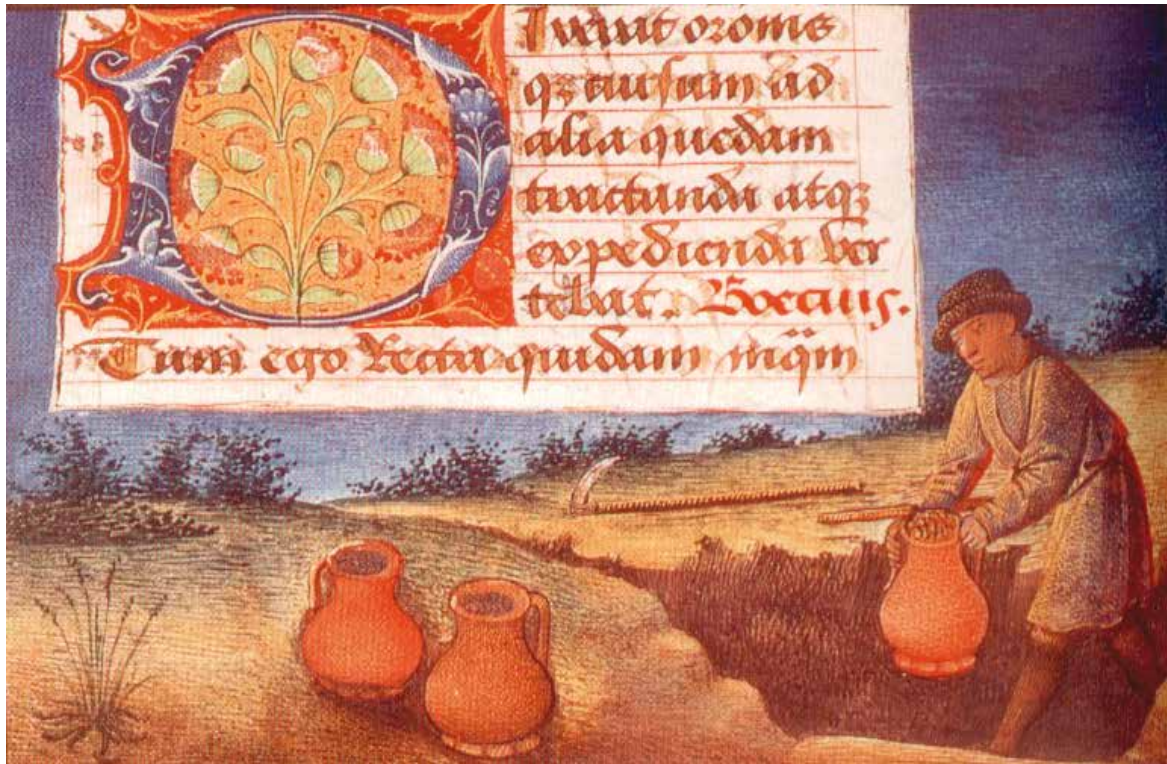 DIxerat oronis
qȝ cursum ad
alia quedam
tractanda atqȝ
expedienda ver
tebat. Boecius.
Tum ego Recta quidam inqm